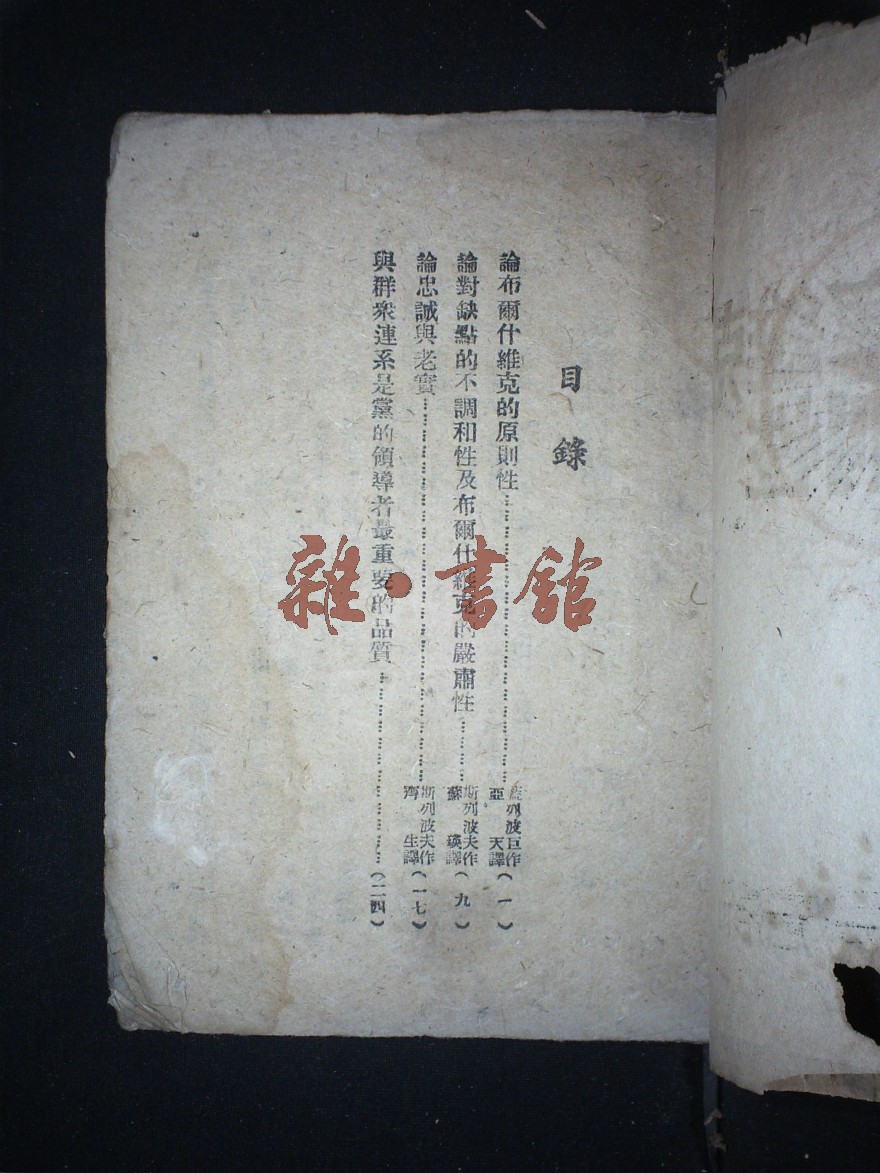 目錄
論布爾什維克的原則性……………………………………列波巨作 亞天譯(一)
論對缺點的不調和性及布爾什維克的嚴肅性…………斯列波夫作 蘇瑛譯(九)
論忠誠與老實………………………………………………斯列波夫作 齊生譯(一七)
與群衆連系是黨的領導者最重要的品質…………………(二四)
雜·書館